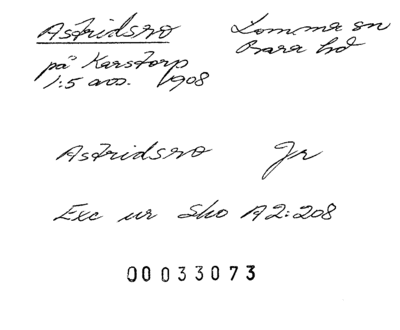 Astridsro
Lomma sn
Bara hd
på Karstorp
1:5 avs. 1908
Astridsro Jr
Exc ur Sko A2:208
00033073